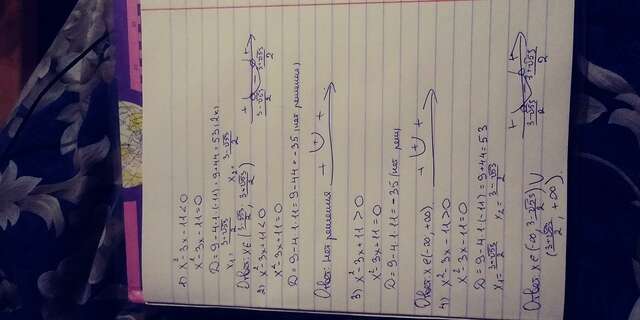 1) x² - 3x - 11 < 0
x² - 3x - 11 = 0
D = 9 - 4 · 1 · (-11) = 9 + 44 = 53 (2к)
x₁ = (3-√53)/2 x₂ = (3-√53)/2
Ответ: x ∈ ((3-√53)/2, (3+√53)/2) + - + (3-√53)/2 (3+√53)/2
2) x² - 3x + 11 < 0
x² - 3x + 11 = 0
D = 9 - 4 · 1 · 11 = 9 - 44 = -35 (нет решения)
Ответ: нет решения + + +
3) x² - 3x + 11 > 0
x² - 3x + 11 = 0
D = 9 - 4 · 1 · 11 = -35 (нет реш)
Ответ: x ∈ (-∞, +∞) + + +
4) x² - 3x - 11 > 0
x² - 3x - 11 = 0
D = 9 - 4 · 1 · (-11) = 9 + 44 = 53
x₁ = (3-√53)/2 x₂ = (3-√53)/2
Ответ: x ∈ (-∞, (3-√53)/2) ∪ + - + (3-√53)/2 (3+√53)/2
((3+√53)/2, +∞).